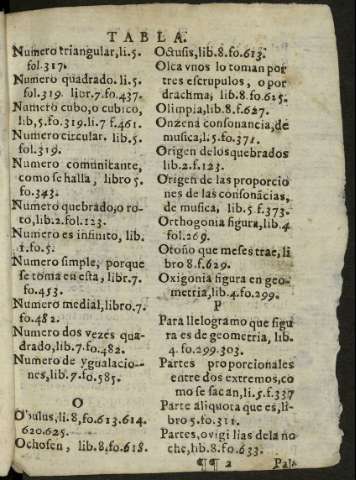 TABLA.
Numero triangular, li. 5.
fol. 317.
Numero quadrado. li. 5.
fol. 319. libr. 7. fo. 437.
Numero cubo, o cubico,
lib, 5. fo. 319. li. 7 f. 461.
Numero circular. lib. 5.
fol. 319.
Numero comunitante,
como se halla, libro 5.
fo. 343.
Numero quebrado, o ro-
to, lib. 2. fol. 123.
Numero es infinito, lib.
1. fo. 5.
Numero simple, porque
se toma en esta, libr. 7.
fo. 453.
Numero medial, libro. 7.
fo. 482.
Numero dos vezes qua-
drado, lib. 7. fo. 482.
Numero de ygualacio-
nes, lib. 7. fo. 585.
O
Obulus, li. 8, fo. 613. 614.
620. 625.
Ochosen, lib. 8, fo. 618.
Octusis, lib. 8. fo. 613.
Olca vnos lo toman por
tres escrupulos, o por
drachma, lib. 8. fo. 625.
Olimpia, lib. 8. f. 627.
Onzena consonancia, de
musica, l. 5. fo. 371.
Origen de los quebrados
lib. 2. f. 123.
Origen de las proporcio
nes de las consonãcias,
de musica, lib. 5. f. 373.
Orthogonia figura, lib. 4
fol. 269.
Otoño que meses trae, li
bro 8. f. 629.
Oxigonia figura en geo-
metria, lib. 4. fo. 299.
P
Para llelogramo que figu
ra es de geometria, lib.
4. fo. 299. 303.
Partes proporcionales
entre dos extremos, co
mo se sacan, li. 5. f. 337
Parte aliquota que es, li-
bro 5. fo. 311.
Partes, o vigilias de la no
che, lib. 8. fo. 633.
¶¶ 2 Pals